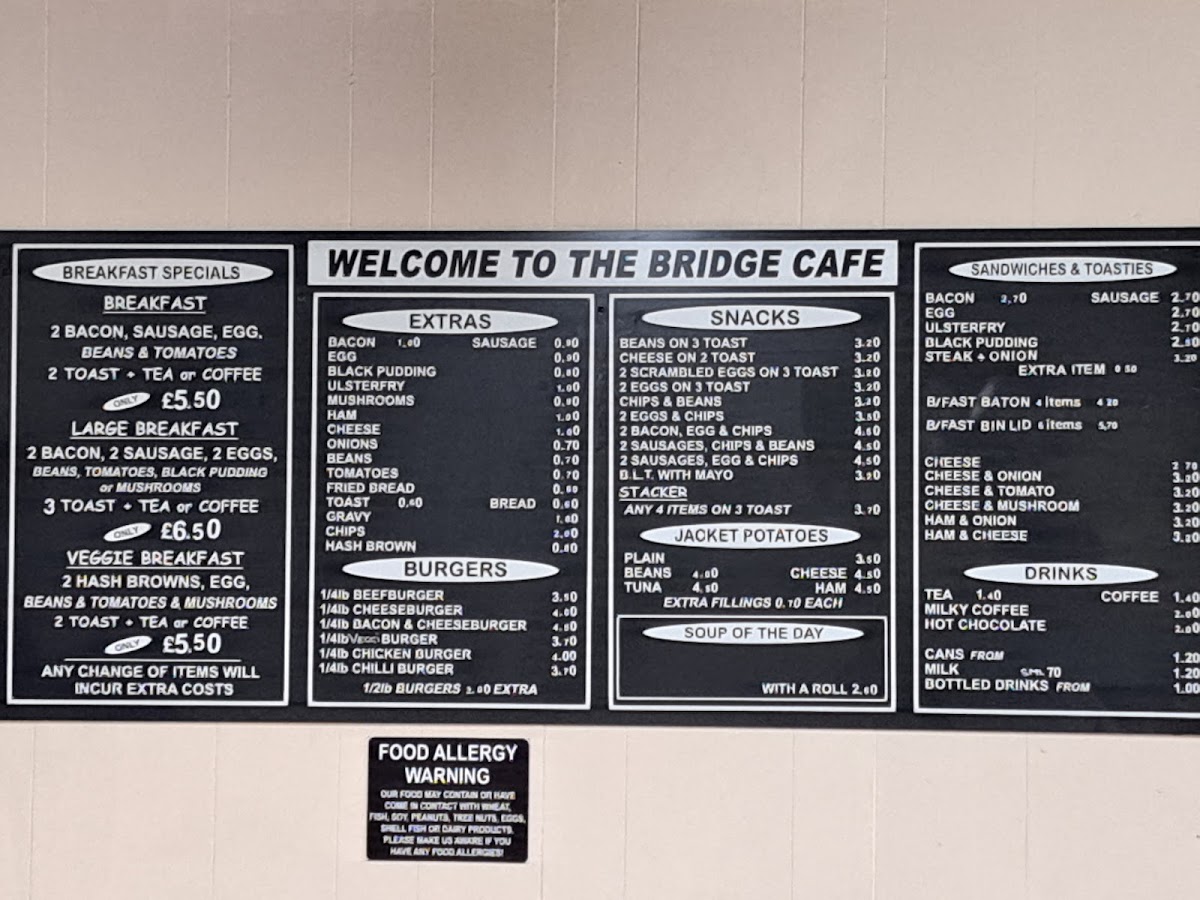 BREAKFAST SPECIALS
BREAKFAST
2 BACON, SAUSAGE, EGG,
BEANS & TOMATOES
2 TOAST + TEA or COFFEE
ONLY £5.50
LARGE BREAKFAST
2 BACON, 2 SAUSAGE, 2 EGGS,
BEANS, TOMATOES, BLACK PUDDING
or MUSHROOMS
3 TOAST + TEA or COFFEE
ONLY £6.50
VEGGIE BREAKFAST
2 HASH BROWNS, EGG,
BEANS & TOMATOES & MUSHROOMS
2 TOAST + TEA or COFFEE
ONLY £5.50
ANY CHANGE OF ITEMS WILL
INCUR EXTRA COSTS
WELCOME TO THE BRIDGE CAFE
EXTRAS
BACON SAUSAGE
EGG
BLACK PUDDING
ULSTERFRY
MUSHROOMS
HAM
CHEESE
ONIONS 0.70
BEANS 0.70
TOMATOES 0.70
FRIED BREAD
TOAST BREAD
GRAVY
CHIPS
HASH BROWN
BURGERS
1/4lb BEEFBURGER
1/4lb CHEESEBURGER
1/4lb BACON & CHEESEBURGER
1/4lb VEGGI BURGER 3.70
1/4lb CHICKEN BURGER 4.00
1/4lb CHILLI BURGER 3.70
1/2lb BURGERS EXTRA
SNACKS
BEANS ON 3 TOAST 3.20
CHEESE ON 2 TOAST 3.20
2 SCRAMBLED EGGS ON 3 TOAST
2 EGGS ON 3 TOAST 3.20
CHIPS & BEANS
2 EGGS & CHIPS 3.50
2 BACON, EGG & CHIPS
2 SAUSAGES, CHIPS & BEANS 4.50
2 SAUSAGES, EGG & CHIPS 4.50
B.L.T. WITH MAYO 3.20
STACKER
ANY 4 ITEMS ON 3 TOAST 3.70
JACKET POTATOES
PLAIN 3.50
BEANS CHEESE 4.50
TUNA 4.50 HAM 4.50
EXTRA FILLINGS 0.70 EACH
SOUP OF THE DAY
WITH A ROLL
SANDWICHES & TOASTIES
BACON 2.70 SAUSAGE 2.70
EGG 2.70
ULSTERFRY 2.70
BLACK PUDDING
STEAK + ONION 3.20
EXTRA ITEM 0 50
B/FAST BATON 4 items 4 20
B/FAST BIN LID 6 items 5,70
CHEESE 2 70
CHEESE & ONION 3.20
CHEESE & TOMATO 3.20
CHEESE & MUSHROOM 3.20
HAM & ONION 3.20
HAM & CHEESE 3.20
DRINKS
TEA 1.40 COFFEE 1.40
MILKY COFFEE 2.00
HOT CHOCOLATE 2.00
CANS FROM 1.20
MILK 70 1.20
BOTTLED DRINKS FROM 1.00
FOOD ALLERGY
WARNING
OUR FOOD MAY CONTAIN OR HAVE
COME IN CONTACT WITH WHEAT,
FISH, SOY, PEANUTS, TREE NUTS, EGGS,
SHELL FISH OR DAIRY PRODUCTS.
PLEASE MAKE US AWARE IF YOU
HAVE ANY FOOD ALLERGIES!